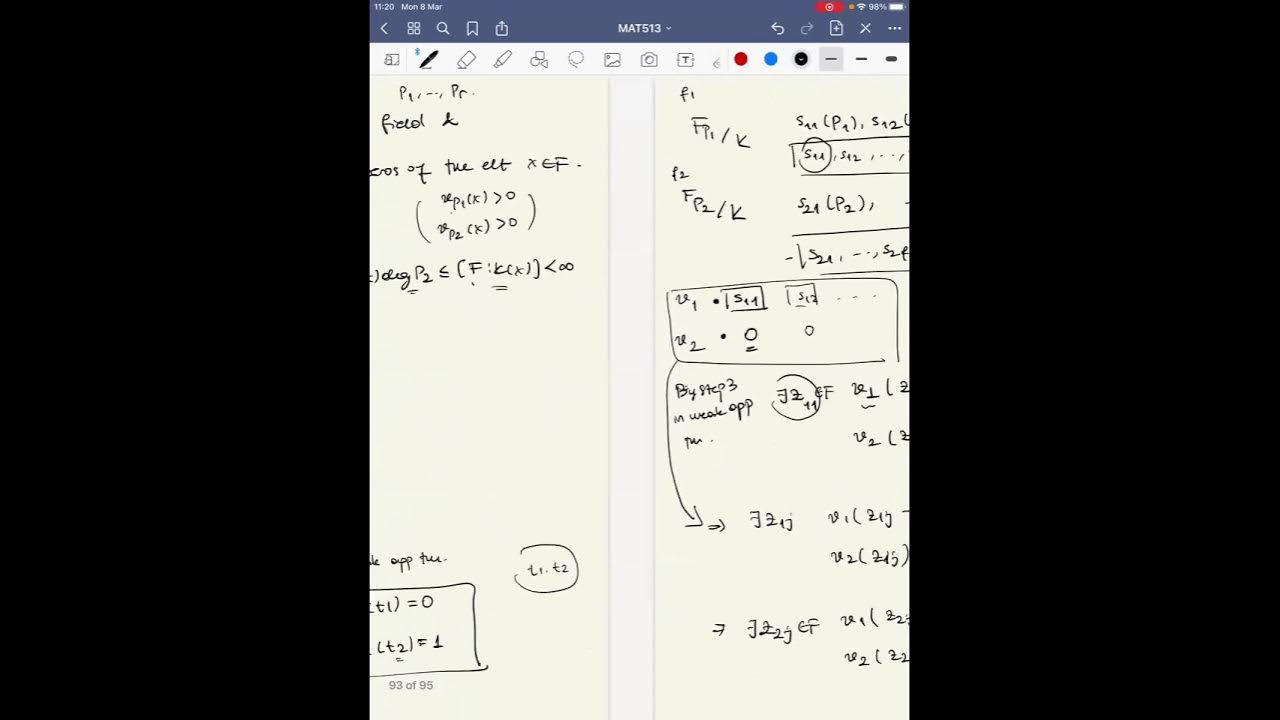 11:20 Mon 8 Mar 98%
MAT513
P1, ..., Pr.
field k
ros of the elt x∈F.
vP1(x) > 0
vP2(x) > 0
) deg P2 ≤ [F:K(x)] < ∞
app thm.
t1.t2
(t1) = 0
(t2) = 1
93 of 95
f1
FP1/K s11(P1), s12(
s11, s12, ...,
f2
FP2/K s21(P2),
s21, ..., s2f
v1 • s11 s12 ...
v2 • 0 0
By step 3 ∃z11∈F v1(z
in weak app
thm. v2(z
⇒ ∃z1j v1(z1j -
v2(z1j)
⇒ ∃z2j∈F v1(z2j
v2(z2